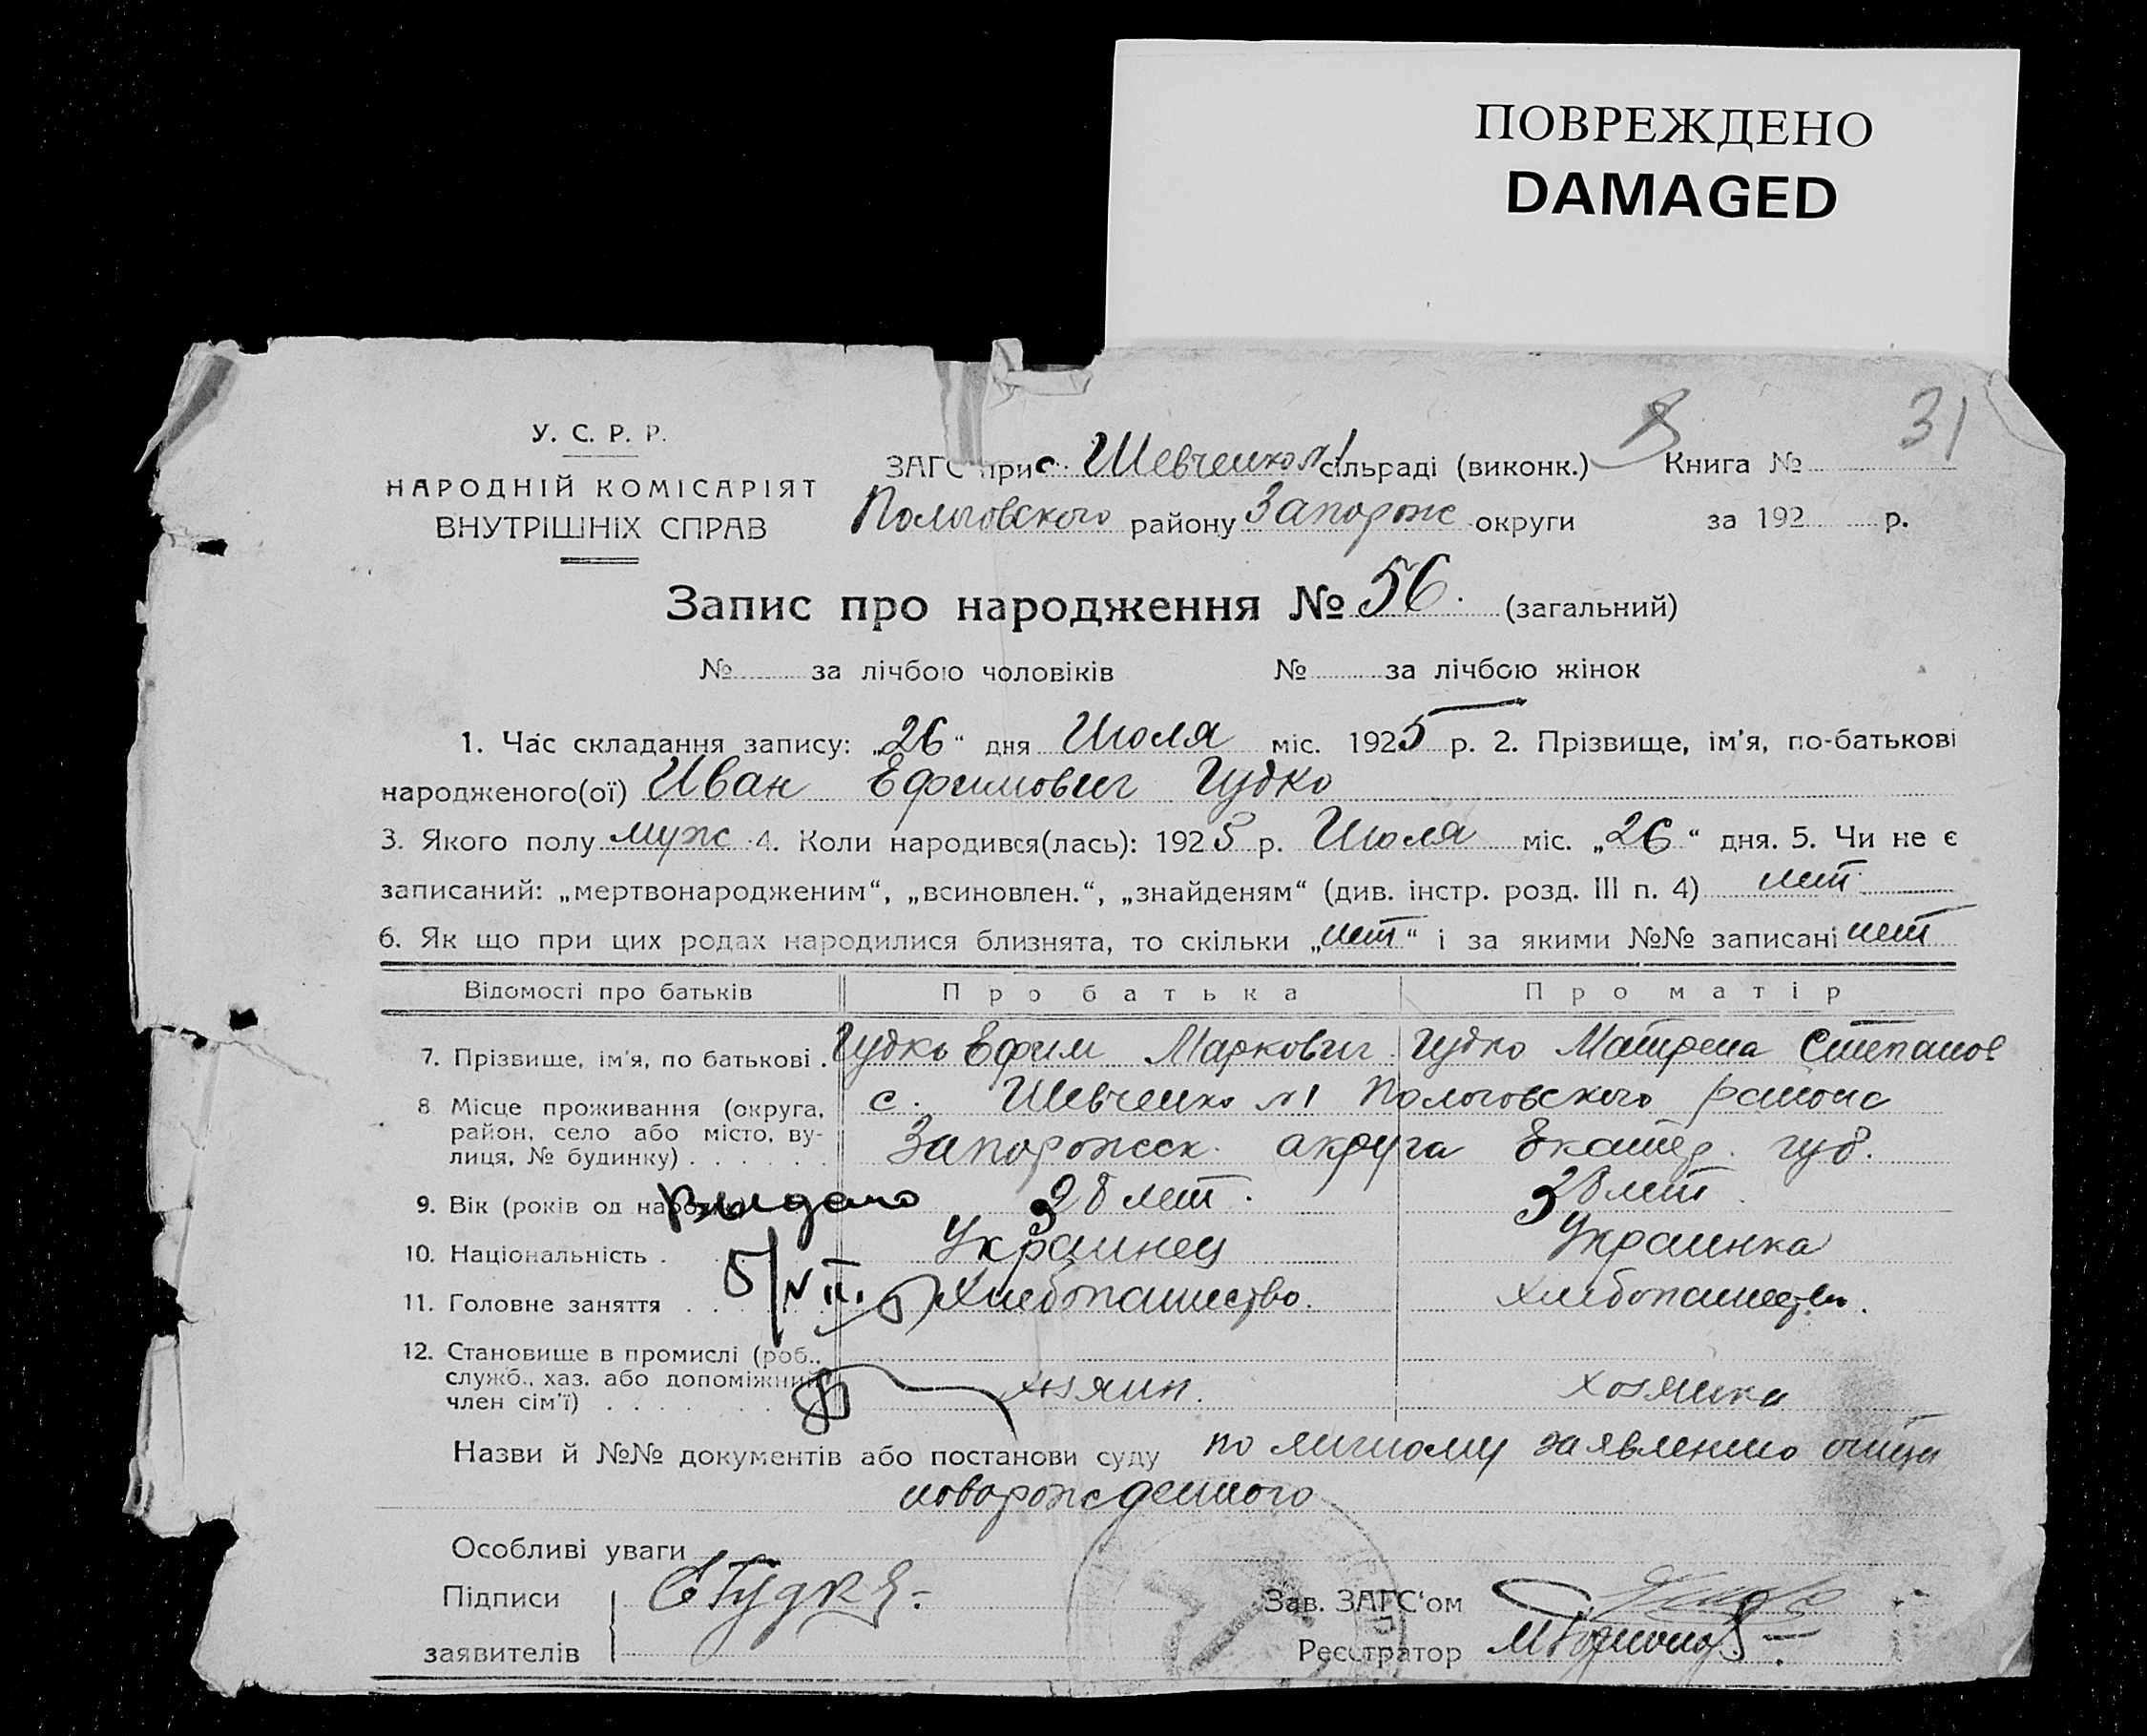 ПОВРЕЖДЕНО
DAMAGED
31
У. С. Р. Р.
НАРОДНІЙ КОМІСАРІЯТ
ВНУТРІШНІХ СПРАВ
ЗАГС при с. Шевченко №1 сільраді (виконк.) Книга №
Пологовского району Запорож округи за 192 р.
Запис про народження № 56. (загальний)
№ за лічбою чоловіків № за лічбою жінок
1. Час складання запису: „26“ дня Июля міс. 1925 р. 2. Прізвище, ім'я, по-батькові
народженого(ої) Иван Ефимович Гудко
3. Якого полу муж 4. Коли народився(лась): 1925 р. Июля міс. „26“ дня. 5. Чи не є
записаний: „мертвонародженим“, „всиновлен.“, „знайденям“ (див. інстр. розд. III п. 4) нет
6. Як що при цих родах народилися близнята, то скільки „нет“ і за якими №№ записані нет
Відомості про батьків Про батька Про матір
7. Прізвище, ім'я, по батькові . Гудко Ефим Маркович Гудко Матрена Степанов
8 Місце проживання (округа, с. Шевченко №1 Пологовского района
район, село або місто, ву-
лиця, № будинку) . . . . . . Запорожск. акруга Екатер. губ.
9. Вік (років од 28 лет. 38 лет.
Выдано
10. Національність . Украинец Украинка
5/VII.
11. Головне заняття . . . Хлебопашество. Хлебопашество.
12. Становище в промислі (роб.,
служб., хаз. або допоміжний
член сім'ї) . . . . . хозяин. хозяйка
Назви й №№ документів або постанови суду по личному заявлению отца
новорожденного
Особливі уваги
Підписи Е Гудко
заявителів
Зав. ЗАГС'ом
Реєстратор